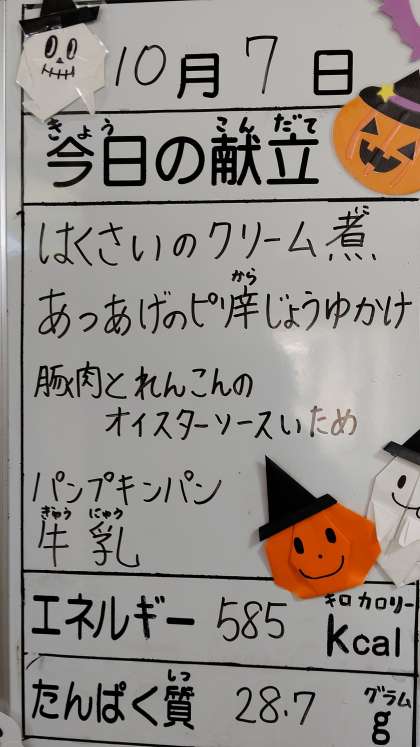 10月7日
きょう こんだて
今日の献立
はくさいのクリーム煮
に
から
あつあげのピリ辛じょうゆかけ
豚肉とれんこんの
オイスターソースいため
パンプキンパン
ぎゅう にゅう
牛乳
エネルギー 585 kcal
キロカロリー
しつ
たんぱく質 28.7 g
グラム